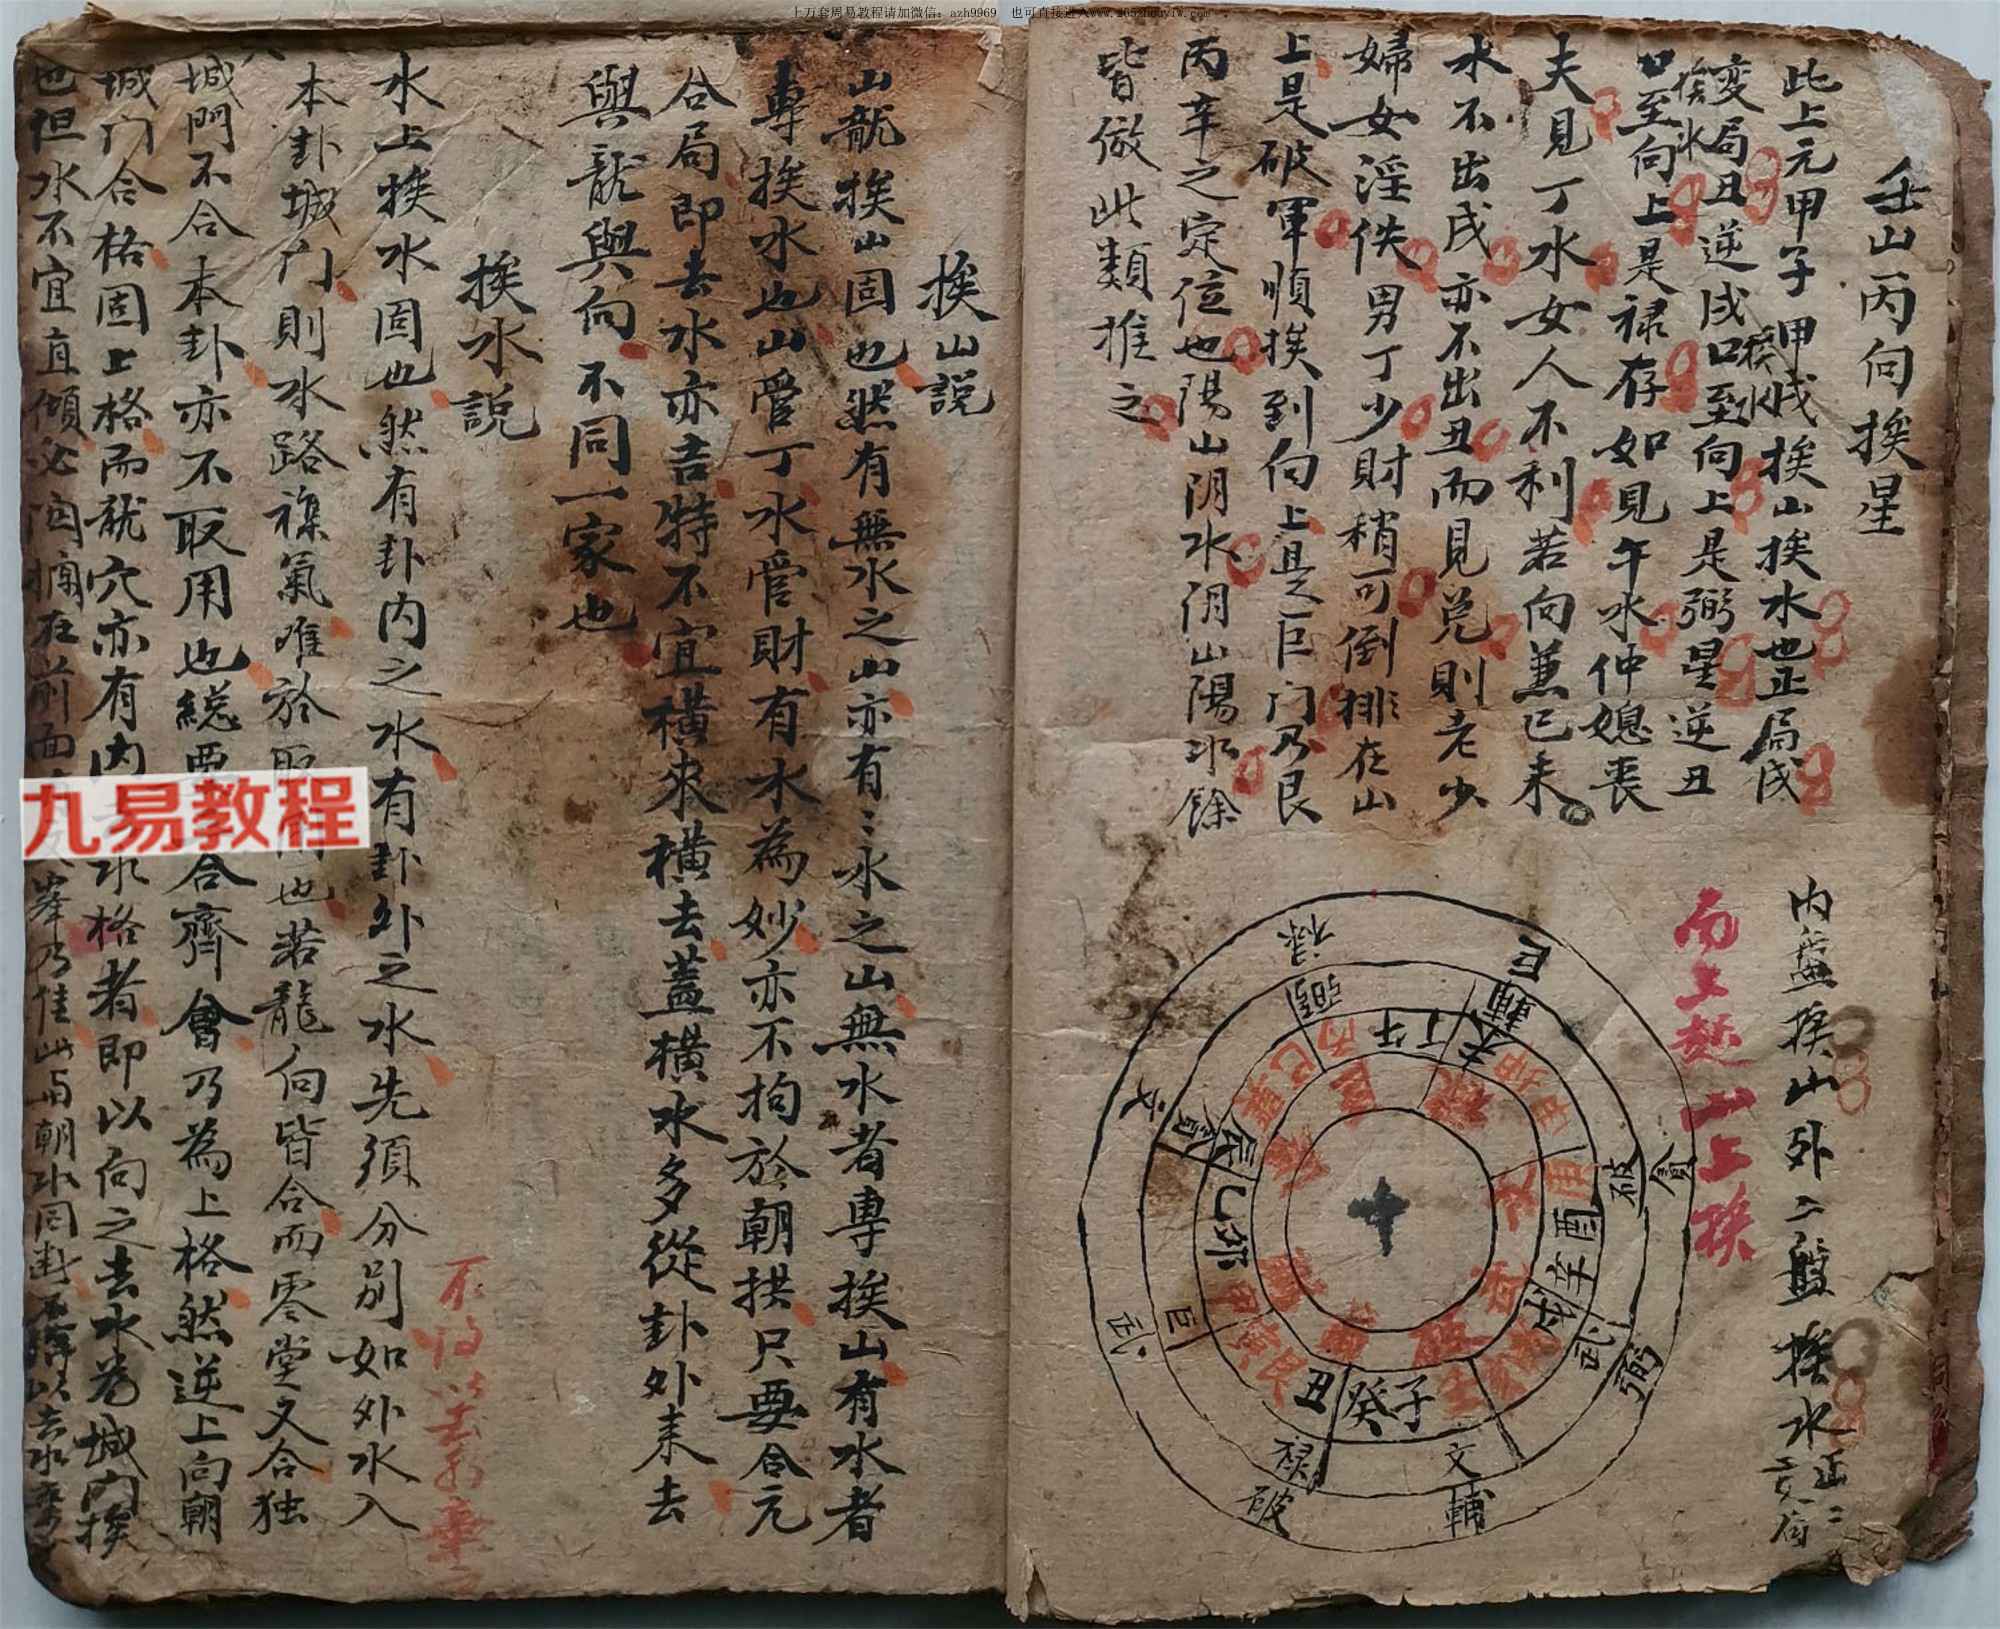 上万套周易教程请加微信：azh9969　也可直接进入www.
壬山丙向挨星
此上元甲子甲戌挨山挨水也正局戌
变局丑逆戌口至向上是弼星逆丑
挨水
挨水
口至向上是禄存如見午水仲媳丧
夫見丁水女人不利若向兼巳未
水不出戌亦不出丑而見兑則老少
婦女淫佚男丁少財稍可倒排在山
上是破軍順挨到向上是巨门乃艮
丙辛之定位也陽山阴水阴山陽水餘
皆倣此類推之
内盘挨山外二盤挨水
向上起山上挨
挨山説
山龍挨山固也然有無水之山亦有有水之山無水者專挨山有水者
專挨水也山管丁水管財有水為妙亦不拘於朝拱只要合元
合局即去水亦吉特不宜横來横去蓋横水多從卦外来去
與龍與向不同一家也
挨水説
水上挨水固也然有卦内之水有卦外之水先須分别如外水入
本卦城门則水路襍氣难於取也若龍向皆合而零堂又合独
城門不合本卦亦不取用也総要合齊會乃為上格然逆上向朝
城门合格固上格而龍穴亦有内水格者即以向之去水為城门挨
也但水不宜直傾必在前面峯乃佳此与朝水同
九易教程
禄
弼
巳
輔
丁午
未
丙
文
辰
乙卯
巨
武
丑
癸子
禄
破
文
輔
武
弼
辛
酉
破
貪